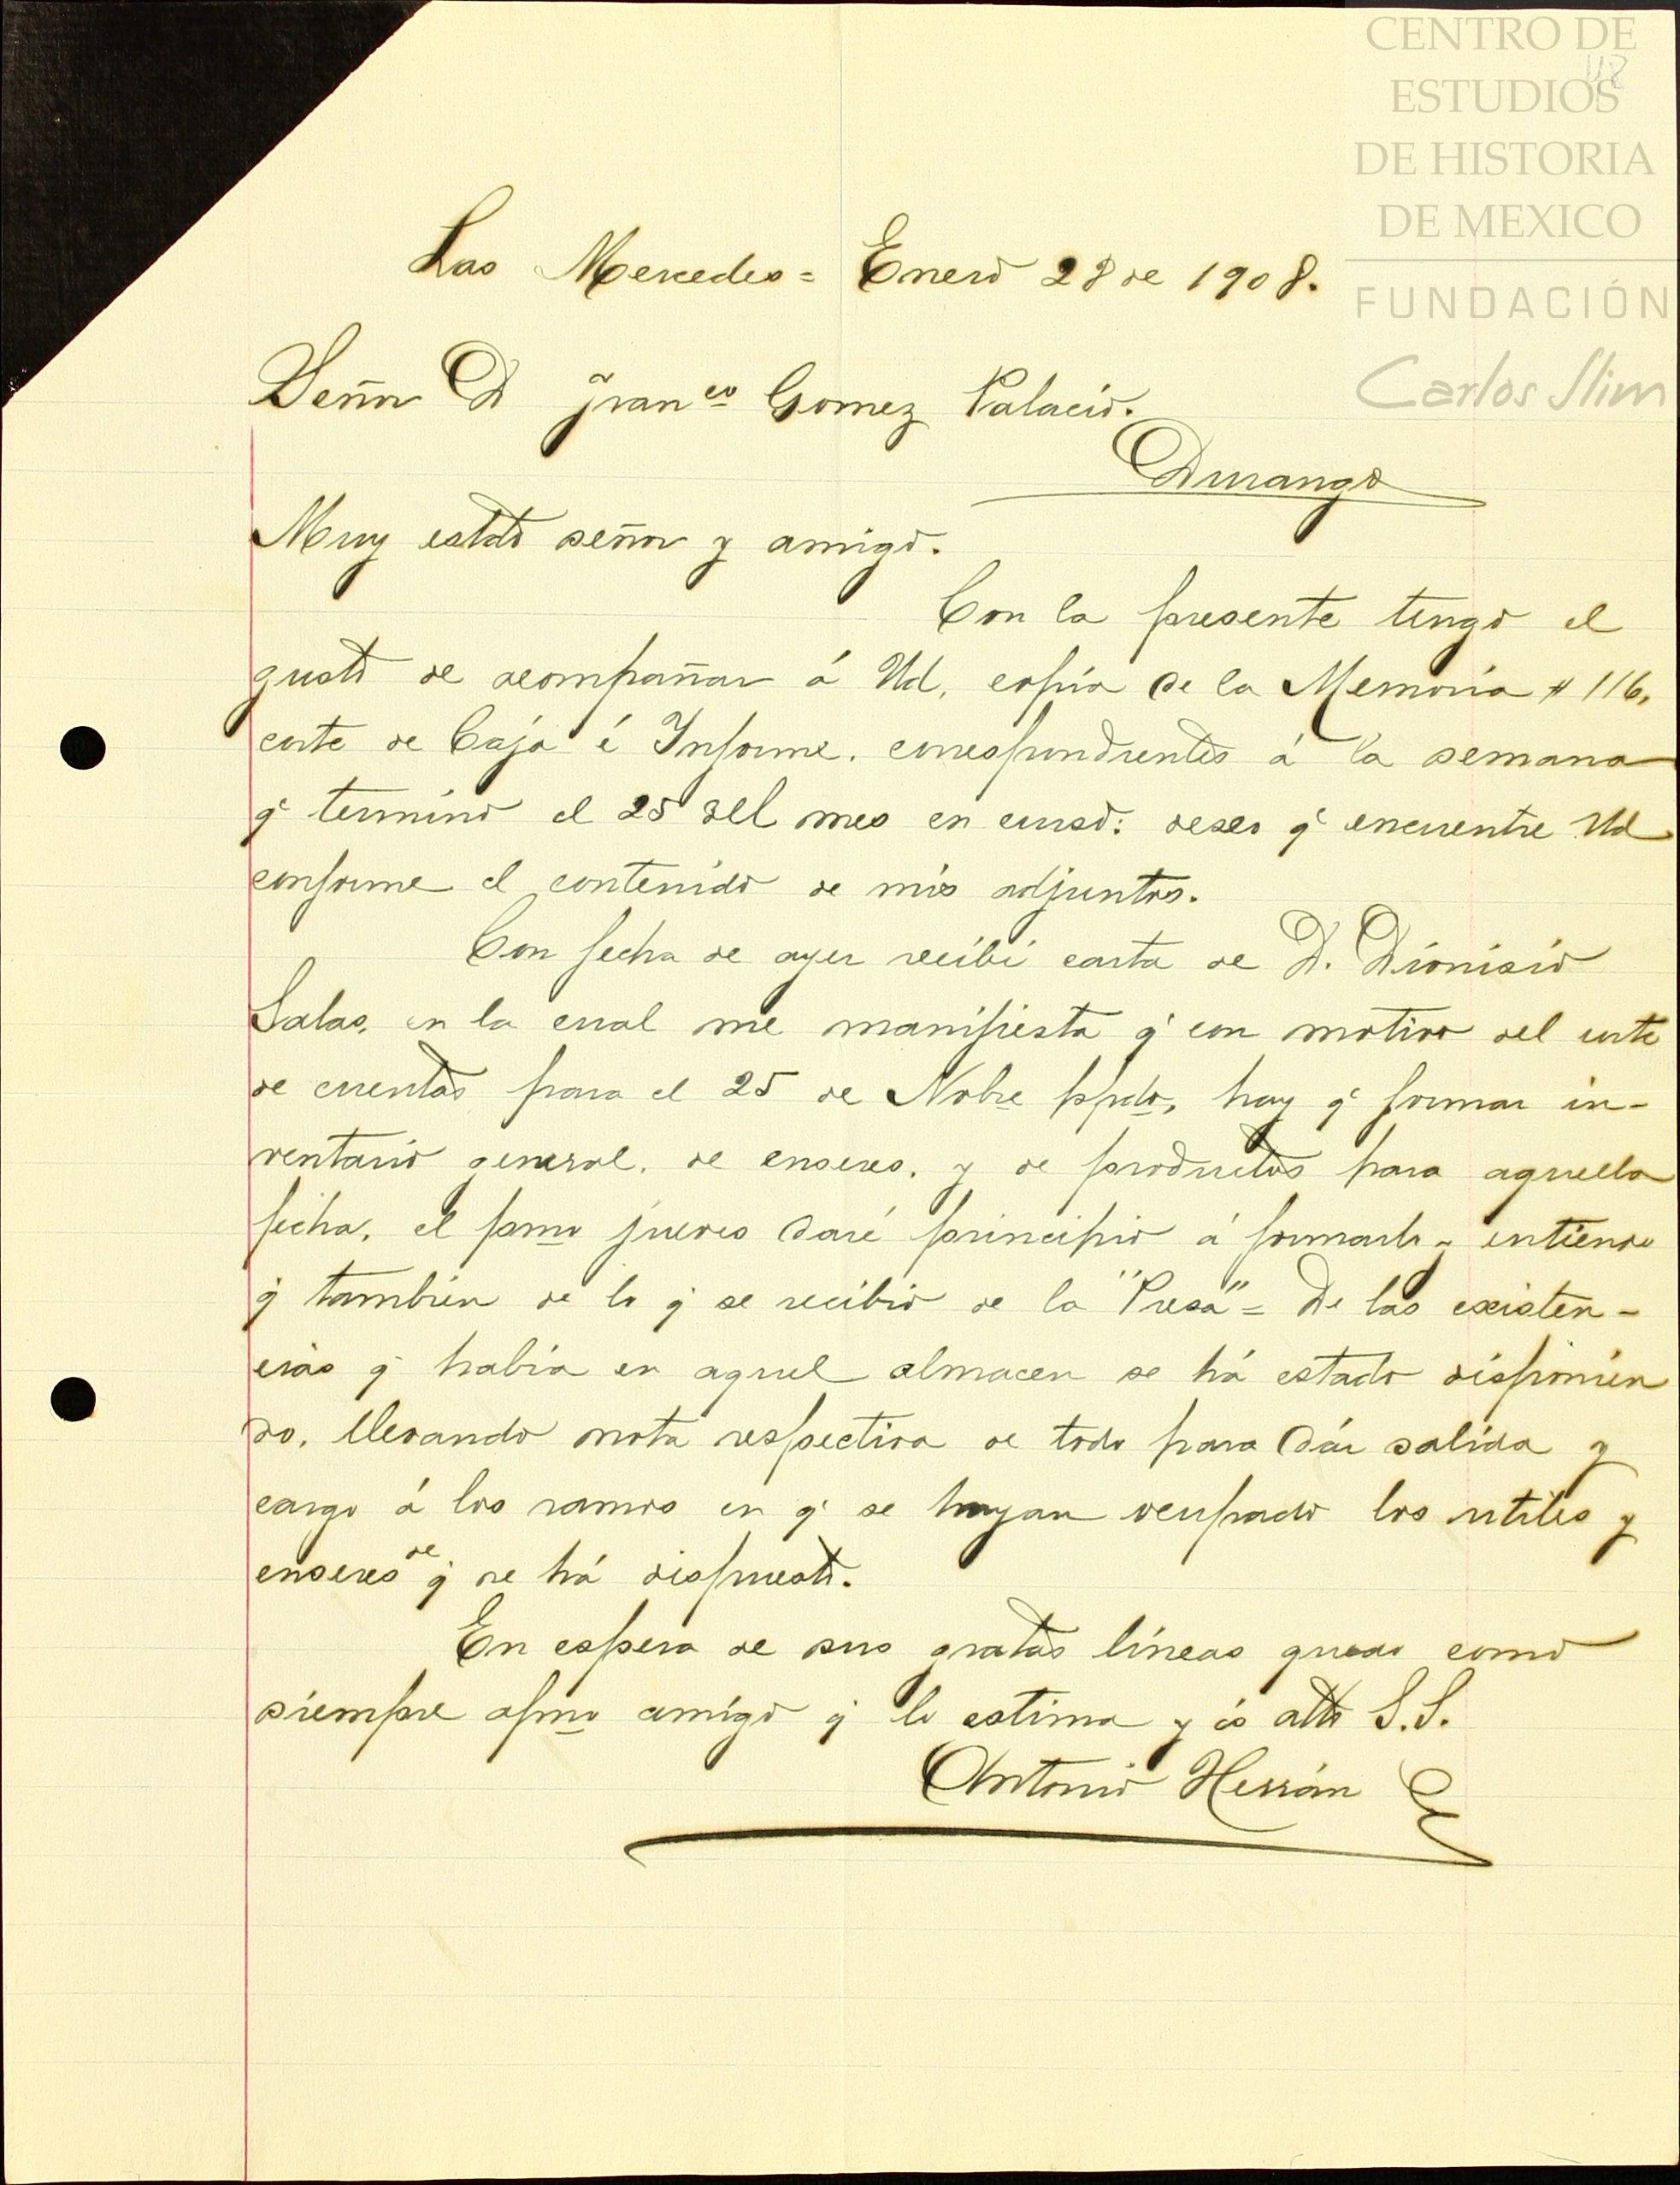 CENTRO DE
ESTUDIOS
DE HISTORIA
DE MEXICO
FUNDACIÓN
Carlos Slim
Las Mercedes = Enero 28 de 1908.
Señor D Franco Gomez Palacio.
Durango
Muy estdo señor y amigo.
Con la presente tengo el
gusto de acompañar á Ud, copia de la Memoria # 116,
corte de Caja é Informe, correspondientes á la semana
q' terminó el 25 del mes en curso: deseo q' encuentre Ud
conforme el contenido de mis adjuntos.
Con fecha de ayer recibí carta de D. Dionisio
Salas, en la cual me manifiesta q' con motivo del corte
de cuentas para el 25 de Nobre ppdo, hay q' formar in-
ventario general, de enseres, y de productos para aquella
fecha, el pmo jueves daré principio á formarlo - entiendo
q' también de lo q' se recibió de la "Presa" = De las existen-
cias q' había en aquel almacen se há estado disponien
do, llevando nota respectiva de todo para dár salida y
cargo á los ramos en q' se hayan ocupado los utiles y
enseres de q' se há dispuesto.
En espera de sus gratas líneas quedo como
siempre afmo amigo q' lo estima y és atto S.S.
Antonio Herrán